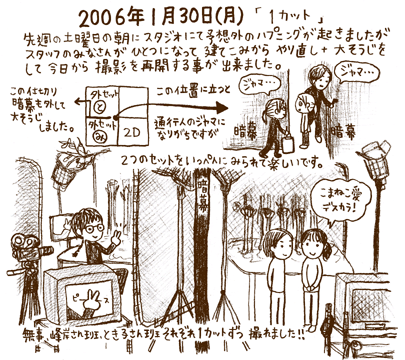 2006年1月30日(月)「1カット」
先週の土曜日の朝にスタジオにて予想外のハプニングが起きましたが
スタッフのみなさんがひとつになって建てこみからやり直し+大そうじを
して今日から撮影を再開する事が出来ました。
この仕切り
暗幕を外して
大そうじ
しました。
外セット
と
外セット
み
2D
この位置に立つと
通行人のジャマに
なりがちですが
ジャマ…
ジャマ…
暗幕
暗幕
2つのセットをいっぺんにみられて楽しいです。
暗幕
こまねこ愛
デスカラ!
ピース
無事、峰岸さん班、ときるさん班 それぞれ1カットずつ 撮れました!!